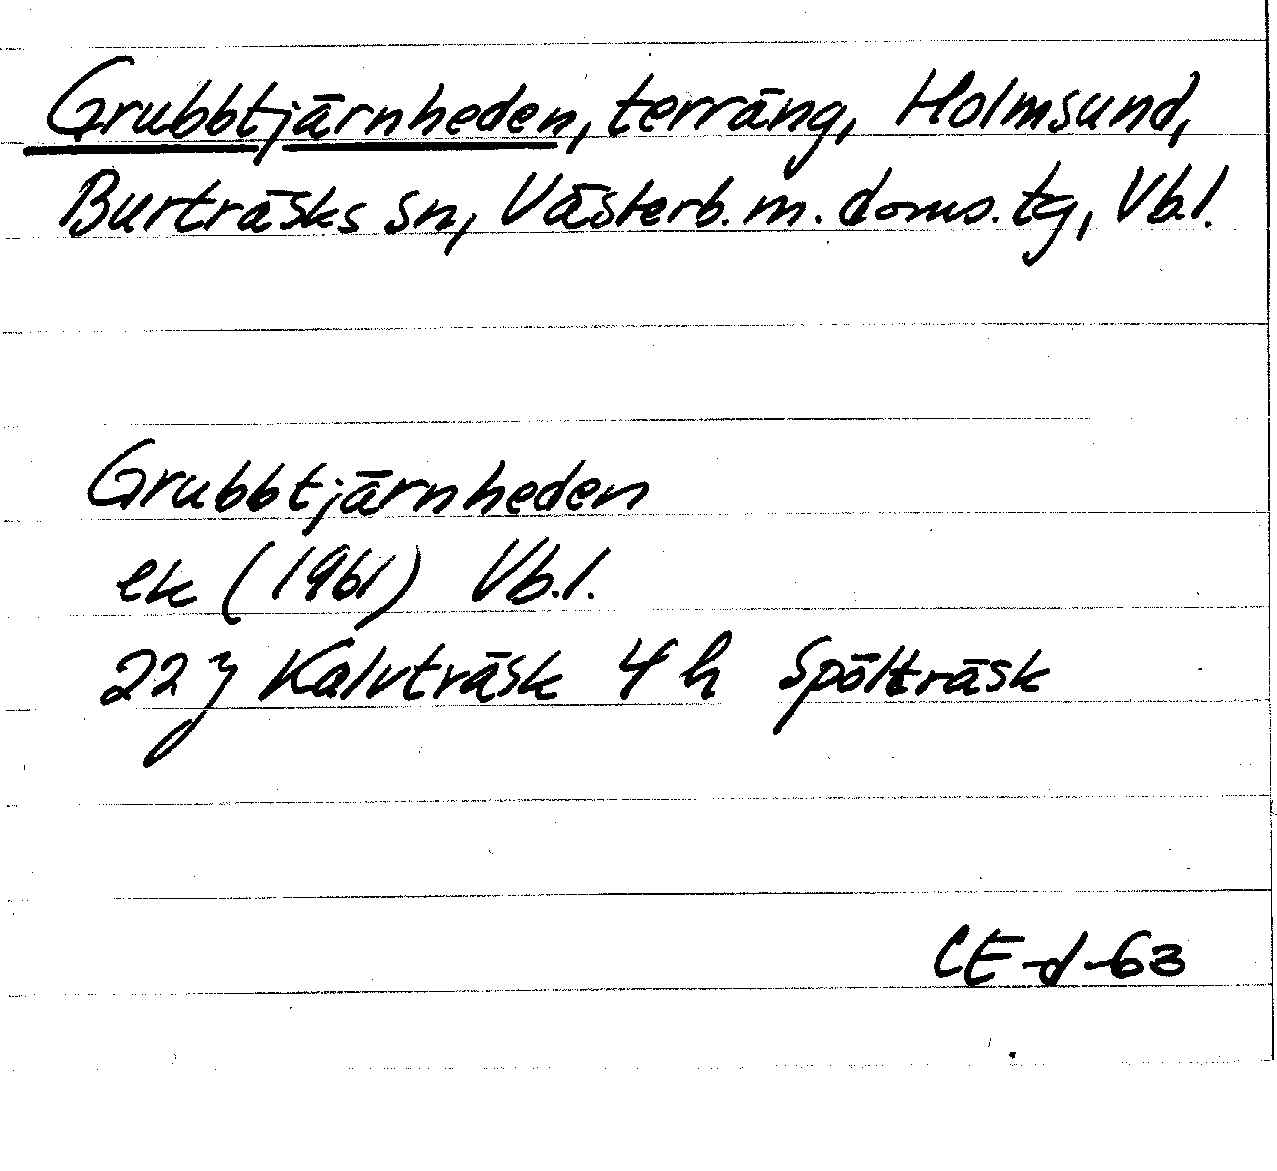 Grubbtjärnheden, terräng, Holmsund,
Burträsks sn, Västerb. m. doms. tg, Vb.l.
Grubbtjärnheden
ek (1961) Vb.l.
22 j Kalvträsk 4 h Spölträsk
CE-d-63